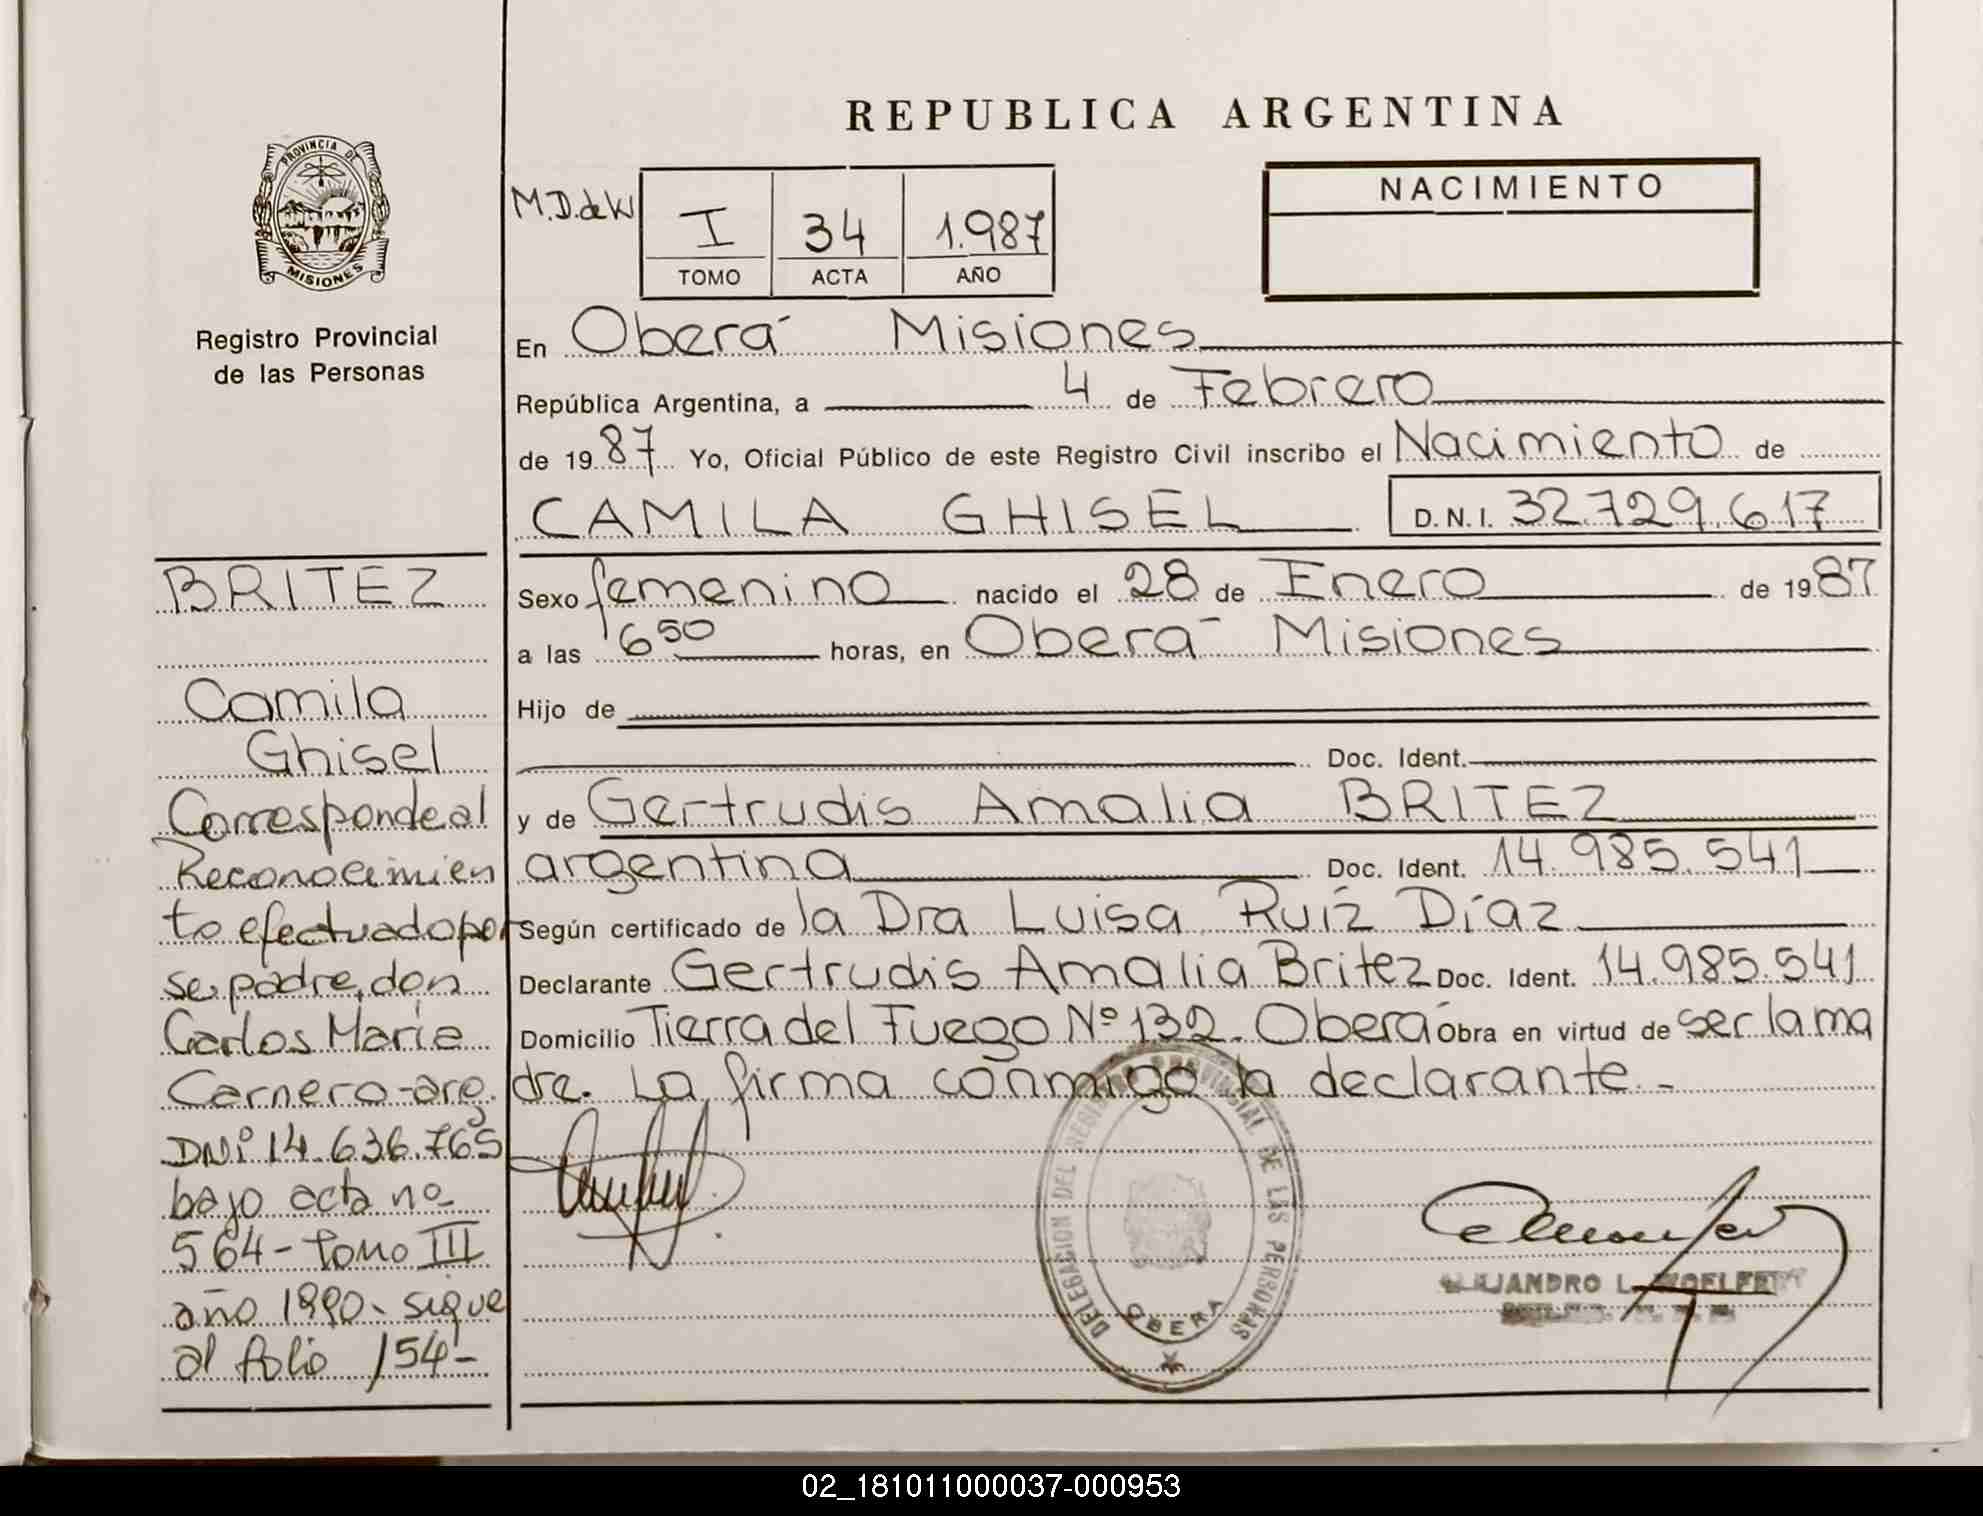 REPUBLICA ARGENTINA
PROVINCIA DE
MISIONES
Registro Provincial
de las Personas
M.D.de W
I 34 1.987
TOMO ACTA AÑO
NACIMIENTO
En Oberá Misiones
República Argentina, a 4 de Febrero
de 1987 Yo, Oficial Público de este Registro Civil inscribo el Nacimiento de
CAMILA GHISEL D.N.I. 32.729.617
Sexo femenino nacido el 28 de Enero de 1987
a las 6 50 horas, en Oberá Misiones
Hijo de
Doc. Ident.
y de Gertrudis Amalia BRITEZ
argentina Doc. Ident. 14.985.541
Según certificado de la Dra Luisa Ruíz Díaz
Declarante Gertrudis Amalia Britez Doc. Ident. 14.985.541
Domicilio Tierra del Fuego Nº 132. Oberá Obra en virtud de ser la ma
dre. La firma conmigo la declarante.-
BRITEZ
Camila
Ghisel
Corresponde al
Reconocimien
to efectuado por
se padre, don
Carlos María
Carnero-arg.
DNI 14.636.765
bajo acta nº
564- Tomo III
año 1990- sigue
al folio 154-
DELEGACION DEL REGISTRO PROVINCIAL DE LAS PERSONAS
OBERA
ALEJANDRO L. WOELFERT
02_181011000037-000953